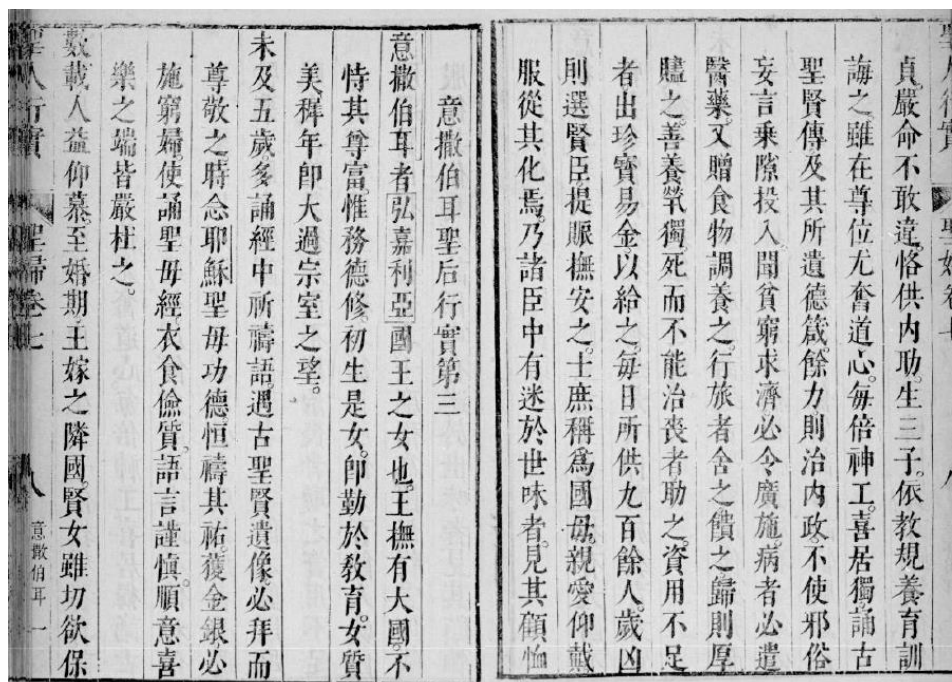 貞。嚴命不敢違。恪供内助。生三子。依教規養育訓
誨之。雖在尊位尤奮道心。每倍神工。喜居獨。誦古
聖賢傳及其所遺德箴。餘力則治内政。不使邪俗
妄言乘隙投入。聞貧窮求濟必令廣施病者必遣
醫藥。又贈食物調養之。行旅者舍之饋之歸則厚
贐之。善養煢獨。死而不能治喪者助之。資用不足
者出珍寶易金以給之。每日所供九百餘人。歲凶
則選賢臣。提賑撫安之。士庶稱爲國母。親愛仰戴
服從其化焉。乃諸臣中有迷於世味者。見其顧恤
意撒伯耳聖后行實第三
意撒伯耳者弘嘉利亞國王之女也。王撫有大國。不
恃其尊富。惟務德修。初生是女。卽勤於敎育。女質
美。穉年卽大過宗室之望。
未及五歲。多誦經中所禱語。遇古聖賢遺像必拜而
尊敬之。時念耶穌聖母功德恒禱其祐。獲金銀必
施窮婦。使誦聖母經衣食儉質。語言謹慎。順意喜
樂之端皆嚴杜之。
數載人益仰慕。至婚期王嫁之隣國。賢女雖切欲保
聖人行實 聖婦卷七 八 意撒伯耳 一